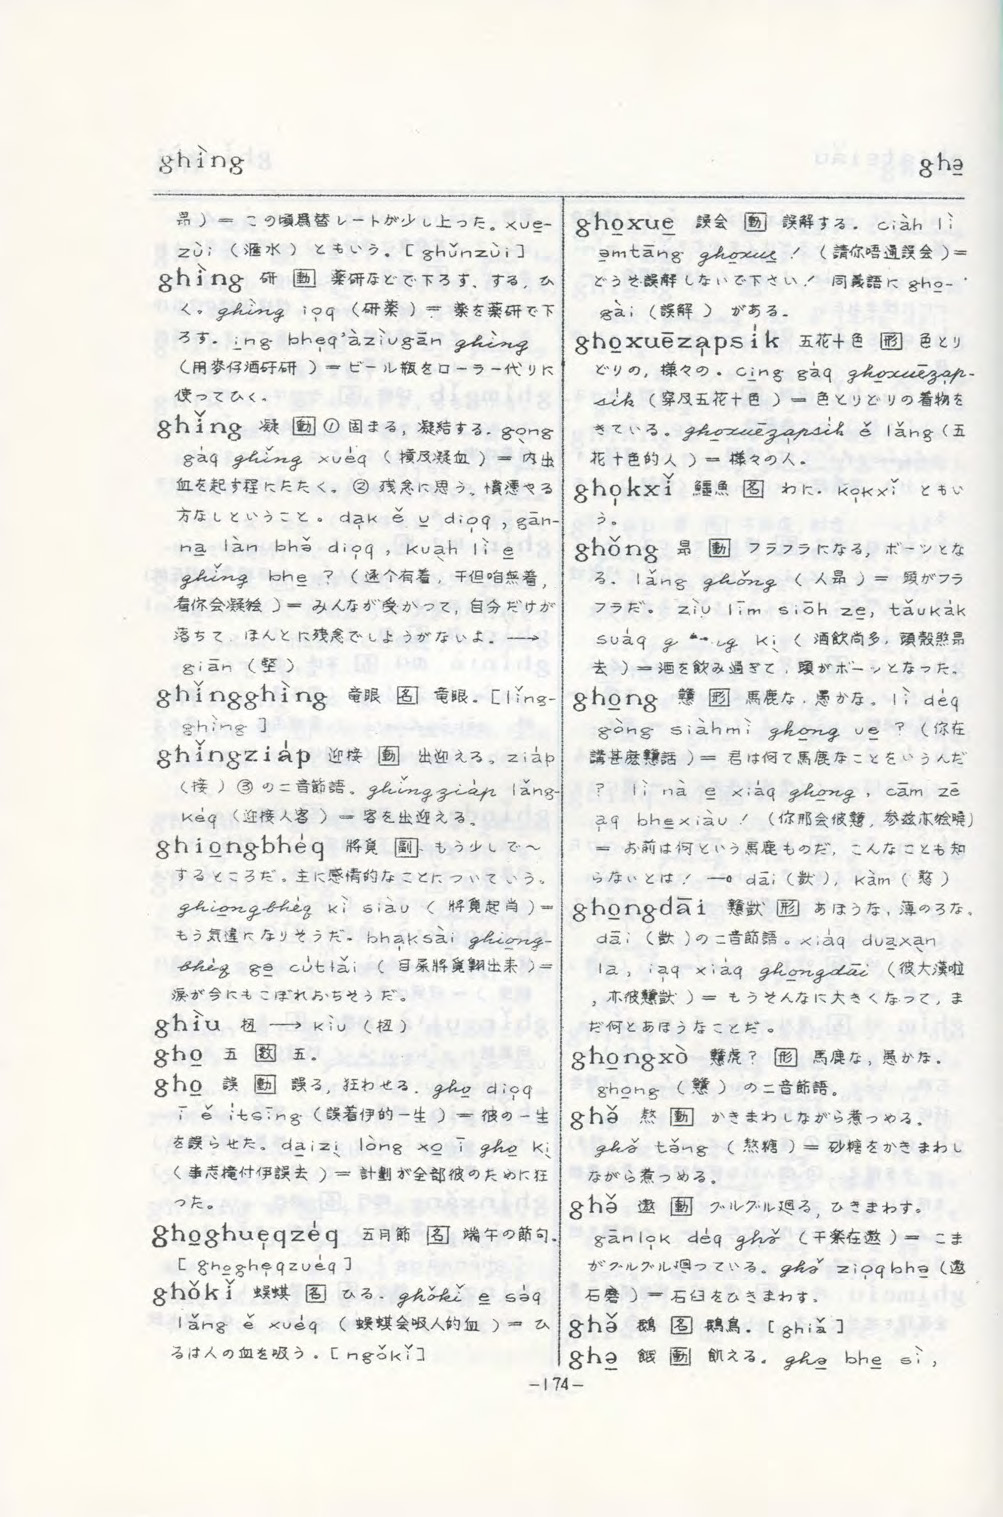 ghìng
ghə̱
昻 ) = この頃爲替レートが少し上った。xue̱-
zùi (滙水) ともいう。[ghǔnzùi]
ghìng 研 [動] 薬研などで下ろす、する、ひ
く。ghìng io̱q (研薬) = 薬を薬研で下
ろす。i̱ng bhe̱q'àziùgān ghìng
(用麥仔酒矸研) = ビール瓶をローラー代りに
使ってひく。
ghǐng 凝 [動] ① 固まる, 凝結する. go̱ng
gáq ghǐng xuéq (摃及凝血) = 内出
血を起す程にたたく。② 残念に思う、憤懣やる
方なしということ。da̱k ě u̱ dio̱q, gān-
na̱ làn bhə̌ dio̱q, kua̱h lì e̱
ghǐng bhe̱ ? (逐个有着, 干但咱無着,
看你会凝 ) = みんなが受かって, 自分だけが
落ちて、ほんとに残念でしようがないよ。⟶
giān (堅)
ghǐngghìng 竜眼 [名] 竜眼. [lǐng-
ghìng]
ghǐngziáp 迎接 [動] 出迎える。ziáp
(接) ③ の二音節語。ghǐngziáp lǎng-
kéq (迎接人客) = 客を出迎える。
ghio̱ngbhéq 將覓 [副] もう少しで〜
するところだ。主に感情的なことについていう。
ghio̱ngbhéq kì siáu (將覓起肖) =
もう気違になりそうだ。bha̱ksài ghio̱ng-
bhéq ge̱ cútlǎi (目屎將覓翱出来) =
涙が今にもこぼれおちそうだ。
ghìu 扭 ⟶ kìu (扭)
gho̱ 五 [数] 五.
gho̱ 誤 [動] 誤る, 狂わせる. gho̱ dio̱q
ī ě ítsīng (誤着伊的一生) = 彼の一生
を誤らせた。da̱izi̱ lòng xo̱ ī gho̱ ki̱
(事志攏付伊誤去) = 計劃が全部彼のために狂
った。
gho̱ghue̱qzéq 五月節 [名] 端午の節句.
[gho̱ghe̱qzuéq]
ghǒkǐ 蜈蜞 [名] ひる. ghǒkǐ e̱ sə́q
lǎng ě xuéq (蜈蜞会吸人的血) = ひ
るは人の血を吸う. [ngǒkǐ]
gho̱xue̱ 誤会 [動] 誤解する. ciàh lì
a̱mtāng gho̱xue̱ ! (請你唔通誤会) =
どうぞ誤解しないで下さい! 同義語に gho̱-
gài (誤解) がある.
gho̱xuēza̱psík 五花十色 [形] 色とり
どりの, 様々の. ci̱ng gáq gho̱xuēza̱p-
sík (穿及五花十色) = 色とりどりの着物を
きている。gho̱xuēza̱psík ě lǎng (五
花十色的人) = 様々の人.
gho̱kxǐ 鱷魚 [名] わに. ko̱kxǐ ともい
う。
ghǒng 昻 [動] フラフラになる, ボーンとな
る. lǎng ghǒng (人昻) = 頭がフラ
フラだ。ziù līm siōh ze̱, tǎukák
suáq g ki̱ (酒飲尚多, 頭殼煞昻
去) = 酒を飲み過ぎて, 頭がボーンとなった。
gho̱ng 戇 [形] 馬鹿な, 愚かな。lì déq
gòng siàhmì gho̱ng ue̱ ? (你在
講甚麽戇話) = 君は何て馬鹿なことをいうんだ
? lì nà e̱ xiáq gho̱ng, cām zē
a̱q bhe̱xiàu ! (你那会彼戇, 参玆亦 曉)
= お前は何という馬鹿ものだ, こんなことも知
らないとは! ―o dāi (獃), kàm (憨)
gho̱ngdāi 戇獃 [形] あほうな, 薄のろな。
dāi (獃) の二音節語。xiáq dua̱xa̱n
la, ia̱q xiáq gho̱ngdāi (彼大漢啦
, 亦彼戇獃) = もうそんなに大きくなって, ま
だ何とあほうなことだ。
gho̱ngxò 戇虎? [形] 馬鹿な, 愚かな.
gho̱ng (戇) の二音節語。
ghə̌ 熬 [動] かきまわしながら煮つめる.
ghə̌ tǒng (熬糖) = 砂糖をかきまわし
ながら煮つめる.
ghə̌ 遨 [動] グルグル廻る, ひきまわす。
gānlo̱k déq ghə̌ (干楽在遨) = こま
がグルグル廻っている。ghə̌ zio̱qbhə (遨
石磨) = 石臼をひきまわす.
ghə̌ 鵝 [名] 鵝鳥. [ghiǎ]
ghə̱ 餓 [動] 飢える。ghə̱ bhe̱ sì,
-174-